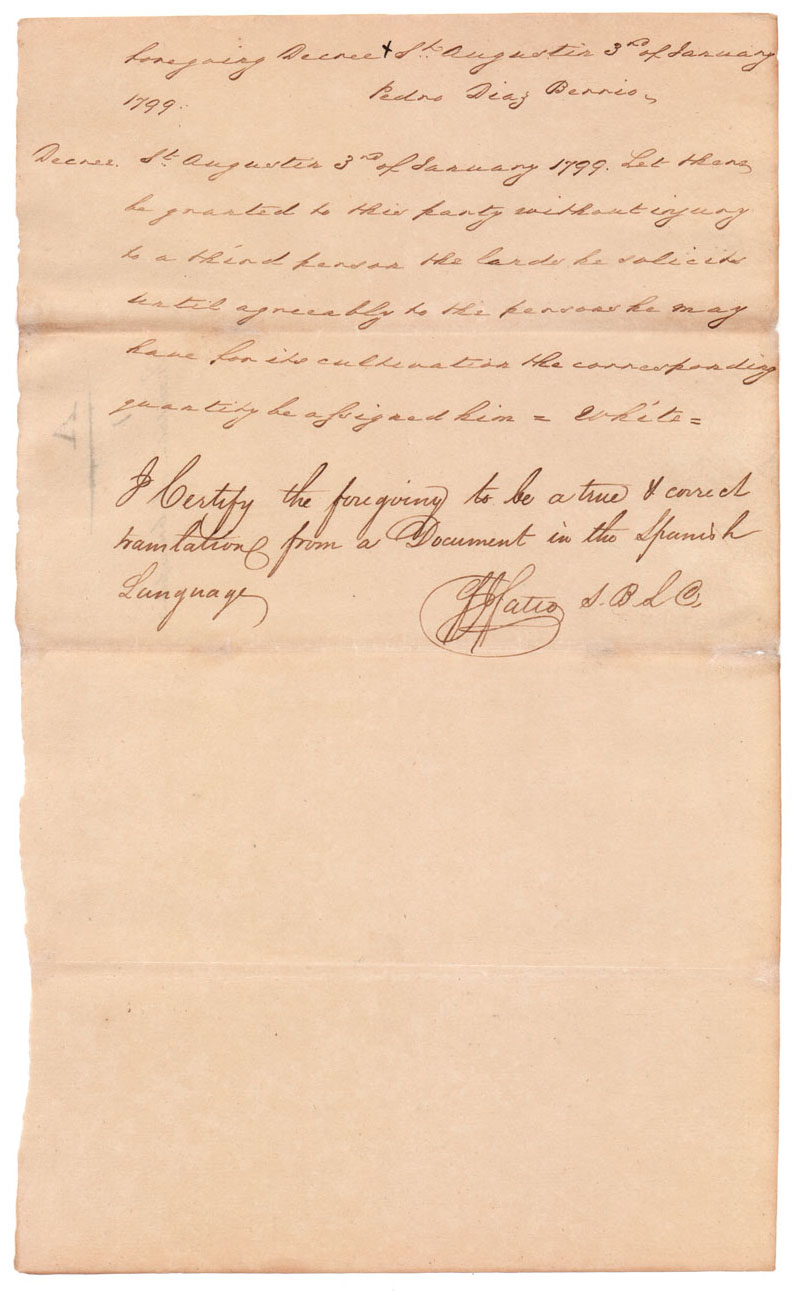 foregoing Decree + St. Augustin 3rd of January
1799. Pedro Diaz Berrio
Decree. St. Augustin 3rd of January 1799. Let there
be granted to this party without injury
to a third person the lands he solicits
until agreeably to the persons he may
have for its cultivation the corresponding
quantity be assigned him = White =
I Certify the foregoing to be a true & correct
translation from a Document in the Spanish
Language
S. B. L. C.